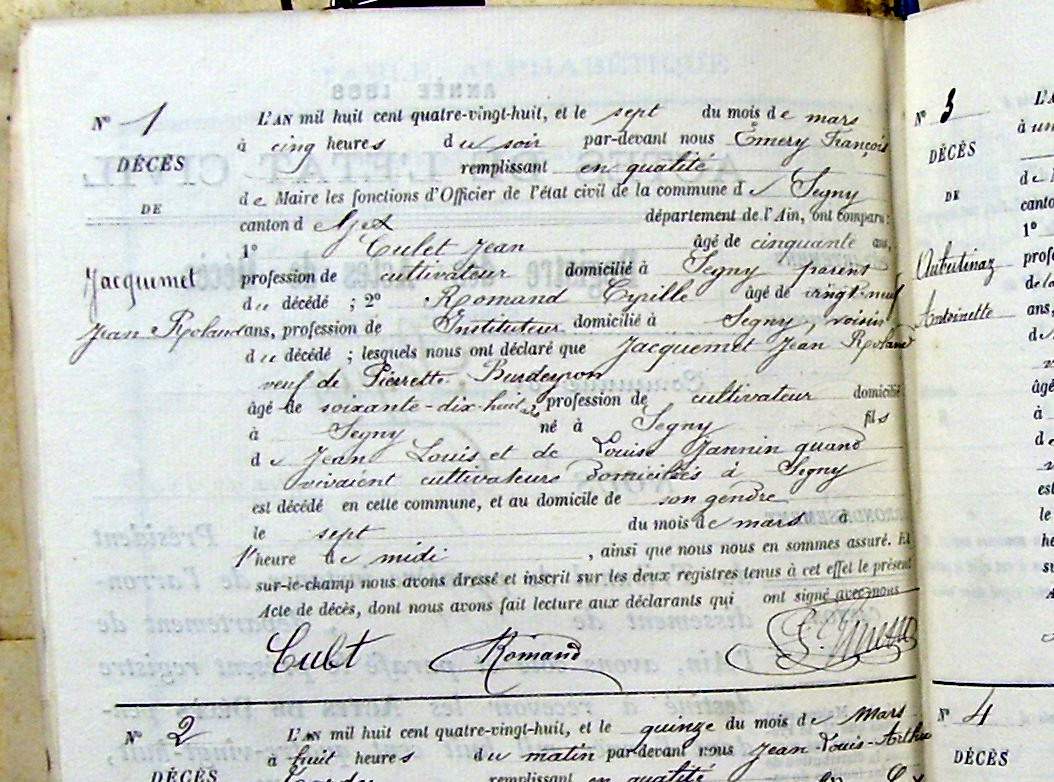 N° 1
DÉCÈS
DE
Jacquemet
Jean Roland
L'AN mil huit cent quatre-vingt-huit, et le sept du mois de mars
à cinq heures du soir par-devant nous Emery François
remplissant en qualité
de Maire les fonctions d'Officier de l'état civil de la commune de Segny
canton de Gex département de l'Ain, ont comparu:
1° Culet Jean âgé de cinquante ans,
profession de cultivateur domicilié à Segny parent
du décédé ; 2° Romand Cyrille âgé de vingt neuf
ans, profession de Instituteur domicilié à Segny, voisin
du décédé ; lesquels nous ont déclaré que Jacquemet Jean Roland
veuf de Pierrette Burdeyron
âgé de soixante-dix-huit profession de cultivateur domicilié
à Segny né à Segny fils
de Jean Louis et de Louise Jannin quand
vivaient cultivateurs domiciliés à Segny
est décédé en cette commune, et au domicile de son gendre
le sept du mois de mars à
l'heure de midi , ainsi que nous nous en sommes assuré. Et
sur-le-champ nous avons dressé et inscrit sur les deux registres tenus à cet effet le présent
Acte de décès, dont nous avons fait lecture aux déclarants qui ont signé avec nous
Culet Romand
N° 2
DÉCÈS
L'AN mil huit cent quatre-vingt-huit, et le quinze du mois de mars
à huit heures du matin par-devant nous Jean-Louis-Arthu
remplissant en qualité
N° 3
DÉCÈS
DE
Antoinette
L'A
à un
canto
1°
profe
de la
ans,
âgé
à
est
le
N° 4
DÉCÈS